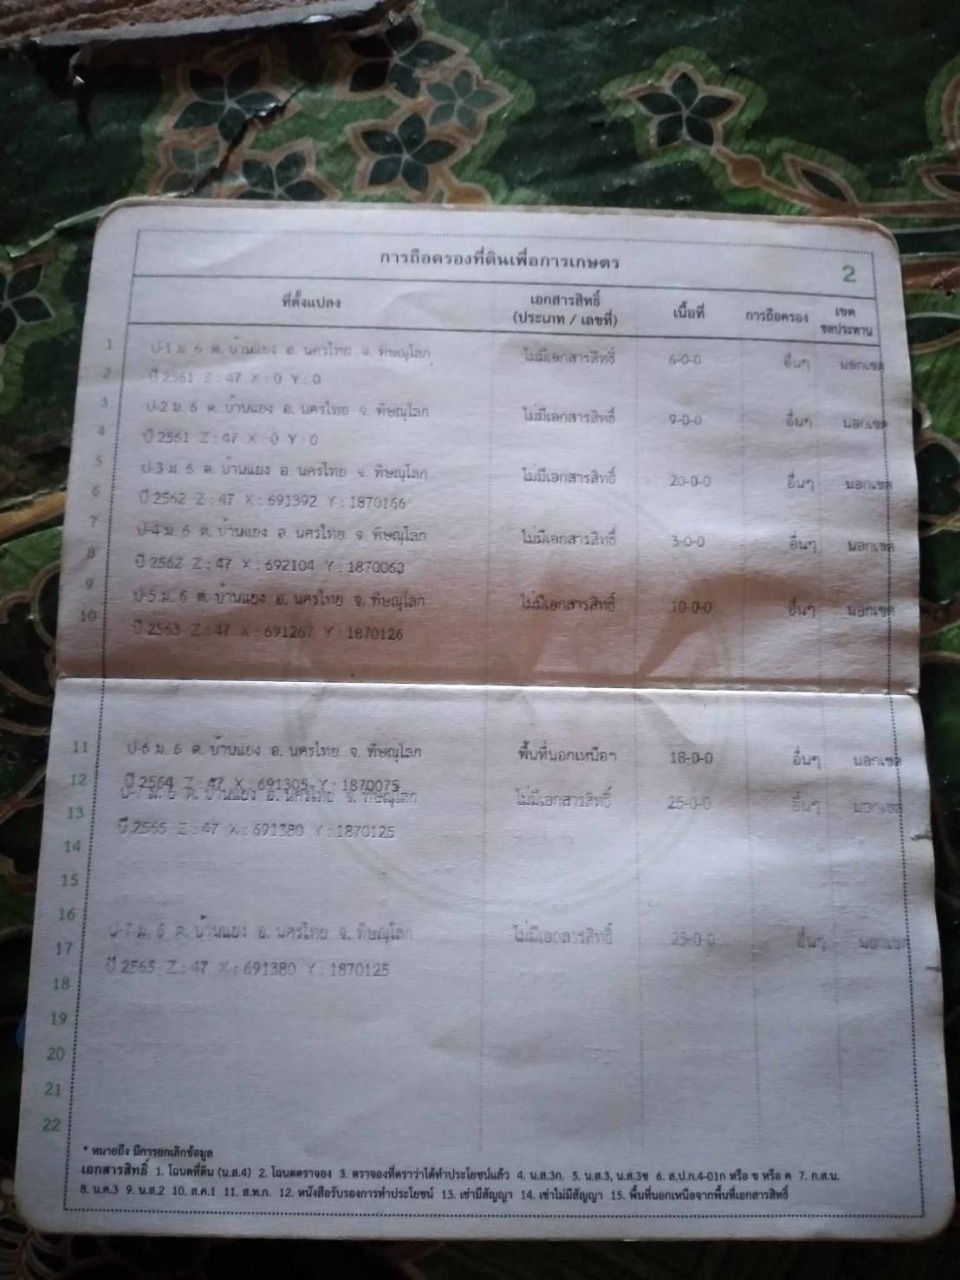 การถือครองที่ดินเพื่อการเกษตร
2
ที่ตั้งแปลง เอกสารสิทธิ์ (ประเภท / เลขที่) เนื้อที่ การถือครอง เขตชลประทาน
1 ป-1 ม 6 ต. บ้านแยง อ. นครไทย จ. พิษณุโลก ไม่มีเอกสารสิทธิ์ 6-0-0 อื่นๆ นอกเขต
2 ปี 2561 Z : 47 X : 0 Y : 0
3 ป-2 ม. 6 ต. บ้านแยง อ. นครไทย จ. พิษณุโลก ไม่มีเอกสารสิทธิ์ 9-0-0 อื่นๆ นอกเขต
4 ปี 2561 Z : 47 X : 0 Y : 0
5 ป-3 ม 6 ต. บ้านแยง อ. นครไทย จ. พิษณุโลก ไม่มีเอกสารสิทธิ์ 20-0-0 อื่นๆ นอกเขต
6 ปี 2562 Z : 47 X : 691392 Y : 1870166
7 ป-4 ม. 6 ต. บ้านแยง อ. นครไทย จ. พิษณุโลก ไม่มีเอกสารสิทธิ์ 3-0-0 อื่นๆ นอกเขต
8 ปี 2562 Z : 47 X : 692104 Y : 1870063
9 ป-5 ม. 6 ต. บ้านแยง อ. นครไทย จ. พิษณุโลก ไม่มีเอกสารสิทธิ์ 10-0-0 อื่นๆ นอกเขต
10 ปี 2563 Z : 47 X : 691267 Y : 1870126
11 ป-6 ม. 6 ต. บ้านแยง อ. นครไทย จ. พิษณุโลก พื้นที่นอกเหนือฯ 18-0-0 อื่นๆ นอกเขต
12 ปี 2564 Z : 47 X : 691305 Y : 1870075
ป-7 ม. 6 ต. บ้านแยง อ. นครไทย จ. พิษณุโลก ไม่มีเอกสารสิทธิ์ 25-0-0 อื่นๆ นอกเขต
13 ปี 2565 Z : 47 X : 691380 Y : 1870125
14
15
16 ป-7 ม. 6 ต. บ้านแยง อ. นครไทย จ. พิษณุโลก ไม่มีเอกสารสิทธิ์ 25-0-0 อื่นๆ นอกเขต
17 ปี 2565 Z : 47 X : 691380 Y : 1870125
18
19
20
21
22
* หมายถึง มีการยกเลิกข้อมูล
เอกสารสิทธิ์ 1. โฉนดที่ดิน (น.ส.4) 2. โฉนดตราจอง 3. ตราจองที่ตราว่าได้ทำประโยชน์แล้ว 4. น.ส.3ก. 5. น.ส.3, น.ส.3ข 6. ส.ป.ก.4-01ก หรือ ข หรือ ค 7. ก.ส.น.
8. น.ค.3 9. น.ส.2 10. ส.ค.1 11. ส.ท.ก. 12. หนังสือรับรองการทำประโยชน์ 13. เช่ามีสัญญา 14. เช่าไม่มีสัญญา 15. พื้นที่นอกเหนือจากพื้นที่เอกสารสิทธิ์